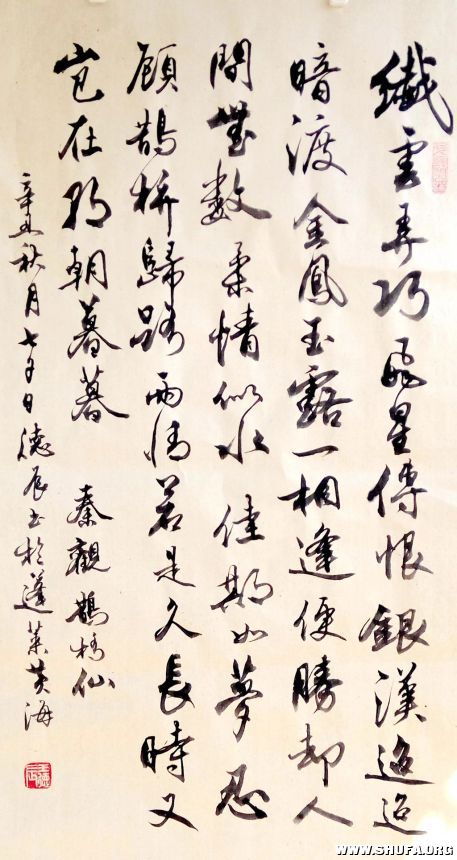 纖雲弄巧飛星傳恨銀漢迢迢
暗渡金鳳玉露一相逢便勝却人
間無數柔情似水佳期如夢忍
顧鵲橋歸路兩情若是久長時又
豈在朝朝暮暮 秦觀鵲橋仙
辛丑秋月七夕日德辰書於蓬萊黃海
WWW.SHUFA.ORG